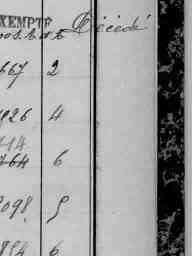 EXEMPTÉ Décédé
667 2
026 4
114
764 6
098 5
854 6